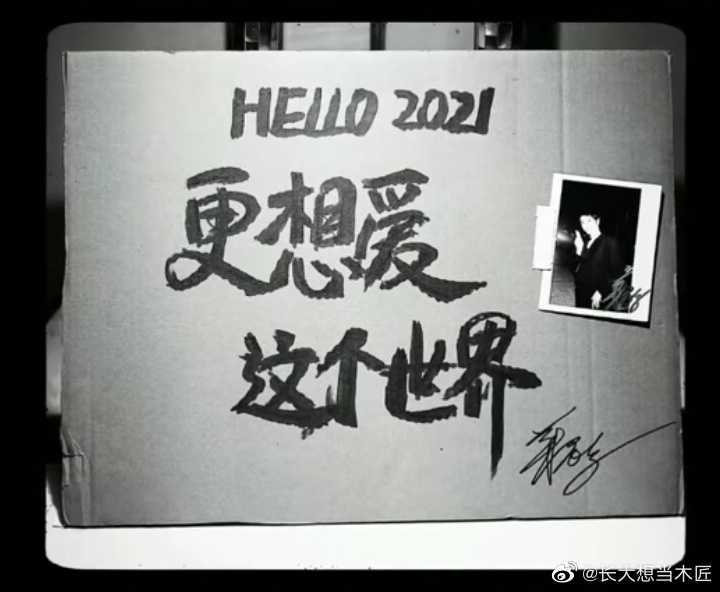 HELLO 2021
更想爱
这个世界
@长大想当木匠